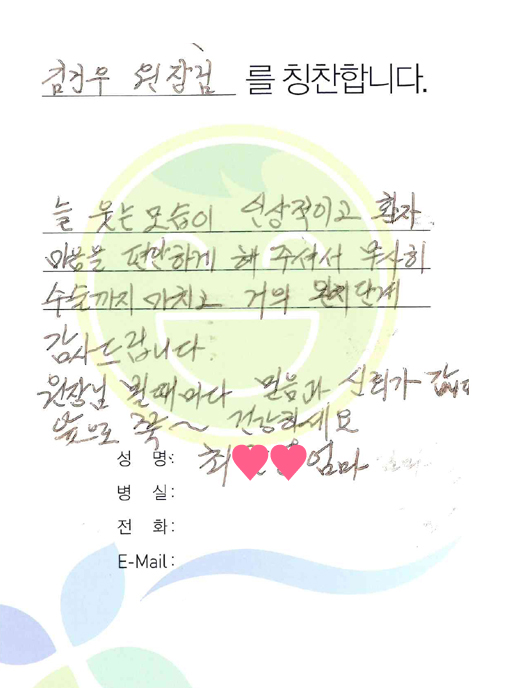 김건우 원장님 를 칭찬합니다.
늘 웃는모습이 인상적이고 환자
마음을 편안하게 해 주셔서 무사히
수술까지 마치고 거의 완치단계
감사드립니다
원장님 뵐때마다 믿음과 신뢰가 갑니다
앞으로 쭉~ 건강하세요
성 명: 최 엄마
병 실:
전 화:
E-Mail: